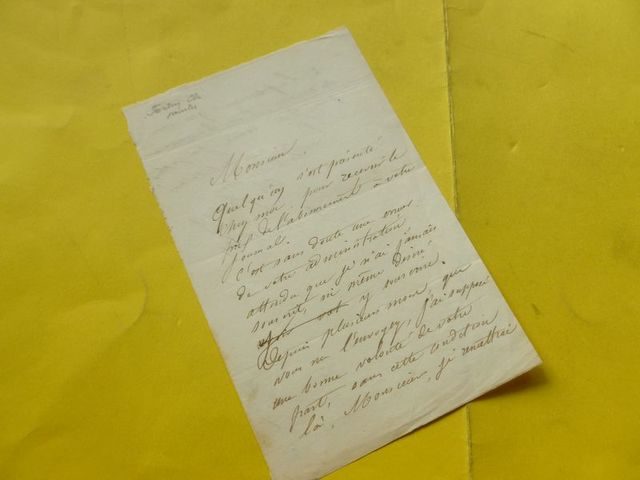 Monsieur,
Quelqu'un s'est présenté
chez moi pour recevoir le
prix de l'abonnement à votre
journal.
C'est sans doute une erreur
de votre administration
attendu que je n'ai jamais
souscrit, ni même désiré
y souscrire.
Depuis plusieurs mois, que
vous me l'envoyez, j'ai supposé
une bonne volonté de votre
part, sans cette condition
là, Monsieur, je remettrai